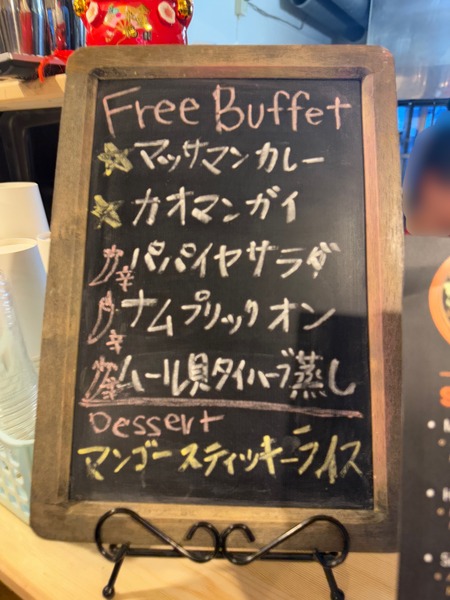 Free Buffet
☆マッサマンカレー
☆カオマンガイ
辛パパイヤサラダ
辛ナムプリックオン
ムール貝タイハーブ蒸し
Dessert
マンゴースティッキーライス